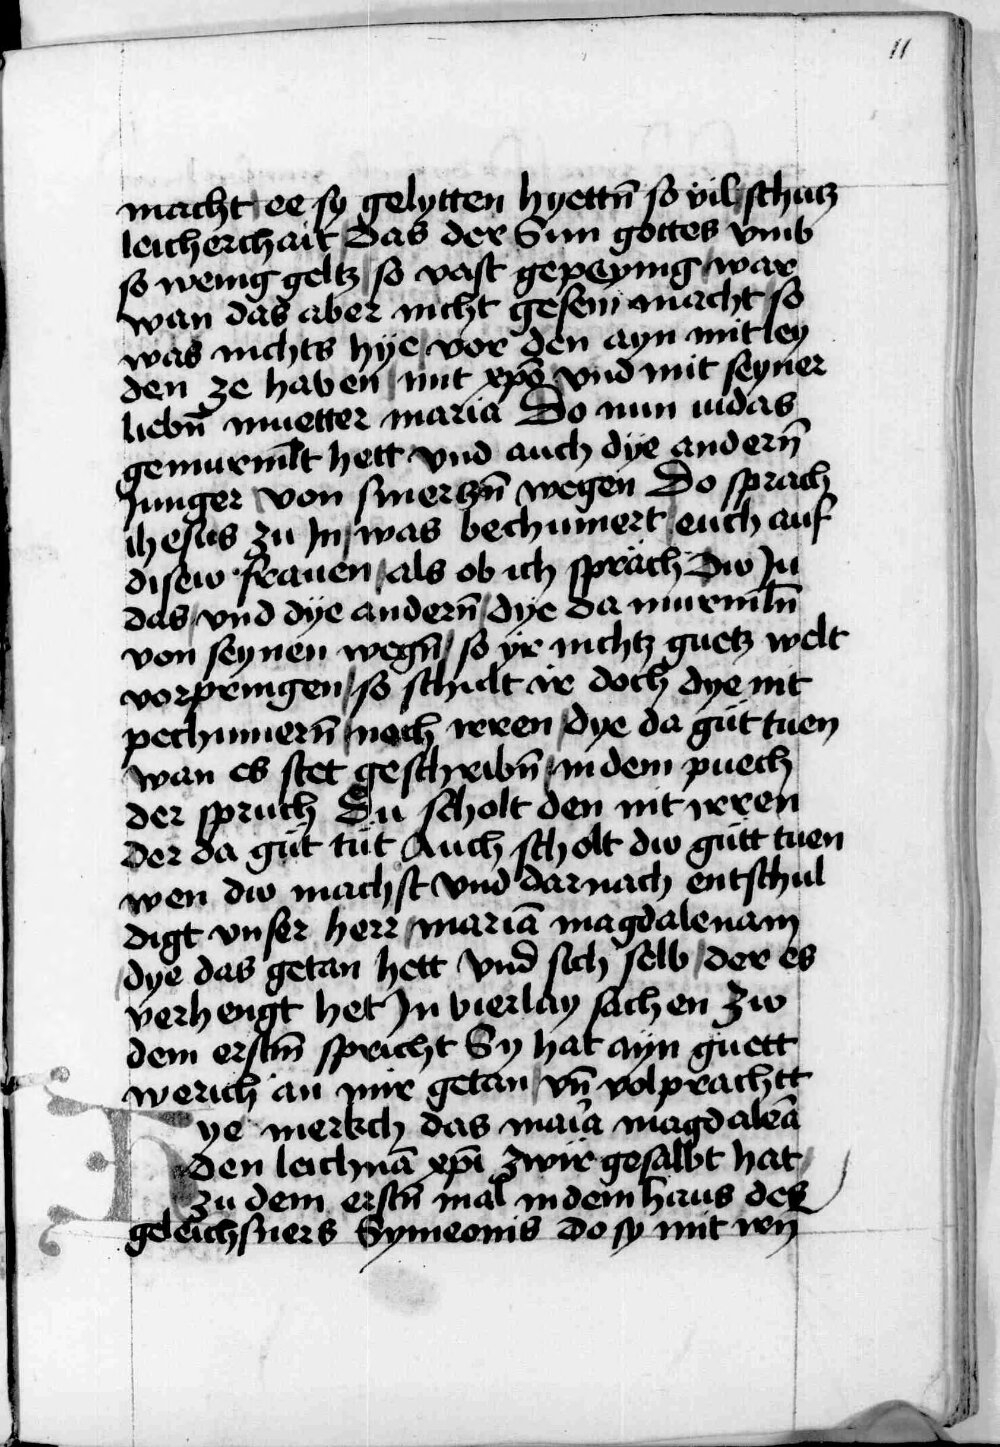 11
macht ee sy gelytten hyettn̄ so vil schatz
leicherchait Das der Sun gottes vmb
so wenig geltz so vast gepeynig war
wan das aber nicht gesein macht so
was nichts hye vor den ayn mitley
den ze haben mit xp̄o vnd mit seyner
liebn̄ muetter maria Do nun iudas
gemurmlt hett vnd auch dye andern̄
Junger von smertzn̄ wegen Do sprach
ihesus zu In was bechumert euch auf
disew frauen als ob ich spräch Dw Ju
das vnd dye andern̄ dye da murmln̄
von seynen wegn̄ so yr nichtz guetz welt
vorpringen so schult ir doch dye nit
pechumern̄ noch irren dye da güt tuen
wan es stet geschribn̄ in dem puech
der spruch Du scholt den nit irren
Der da güt tüt Auch scholt dw gütt tuen
wen dw machst Vnd darnach entschul
digt vnser herr mariā magdalenam
dye das getan hett Vnd sich selb der es
verhengt het In vierlay sachen Zw
dem erstm̄ spricht Sy hat ayn guett
werich an mir getan vn̄ volprachtt
Hye merkch das maīa magdaleā
den leichnā xp̄i zwir gesalbt hat
zu dem erstn̄ mal in dem haus des
geleichsners Symeonis Do sy mit ren